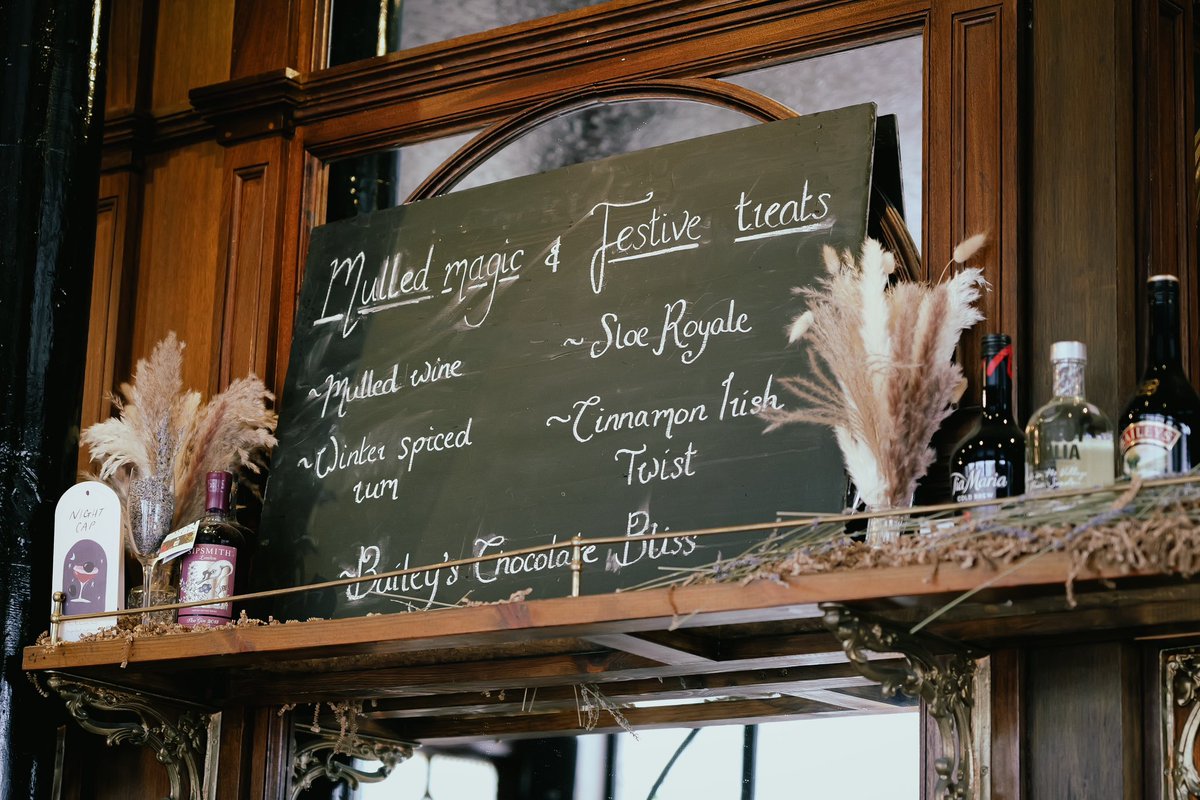 Mulled magic & Festive treats
~Mulled wine
~Winter spiced
rum
~Sloe Royale
~Cinnamon Irish
Twist
~Bailey's Chocolate Bliss
NIGHT
CAP
SIPSMITH
London
Tia Maria
COLD BREW
BAILEYS